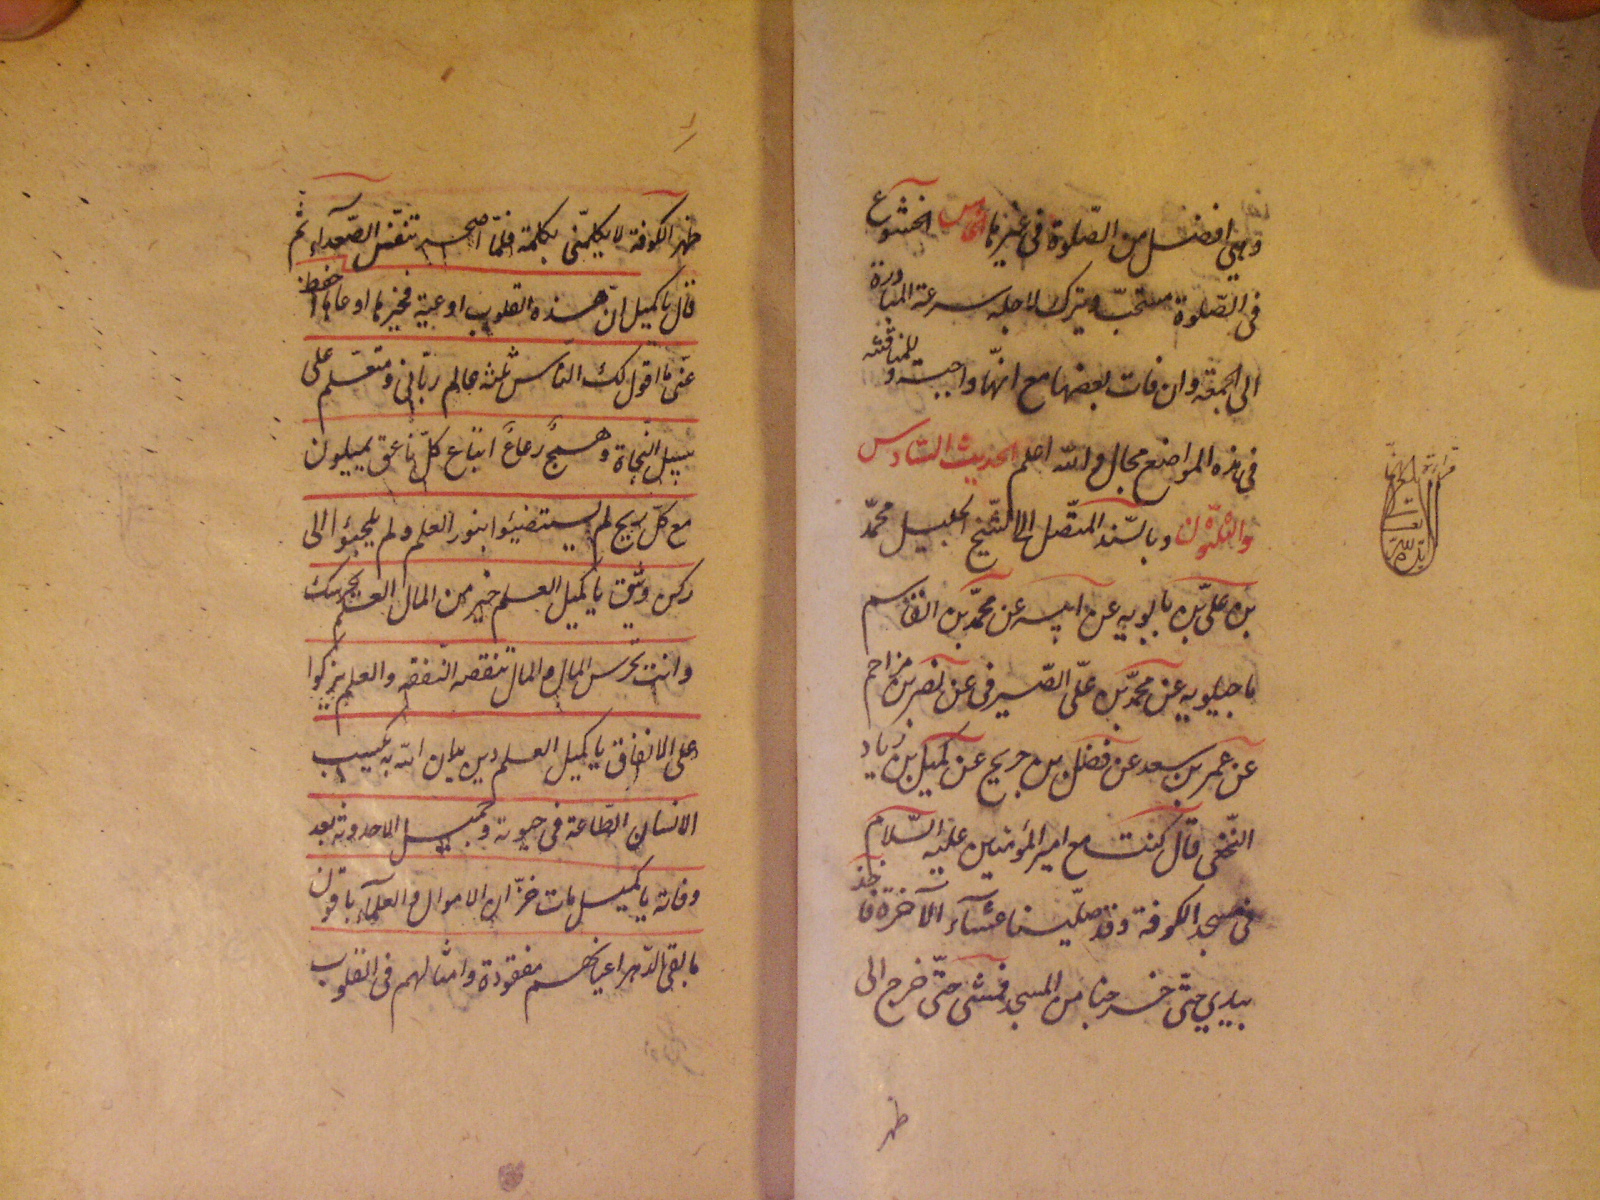 وهي افضل من الصّلوة في غيرها الخامس الخشوع
في الصّلوة مستحبّ ويترك لاجله سرعة المبادرة
الى الجمعة وان فات بعضها مع انّها واجبة وللمناقشة
في هذه المواضع مجال والله اعلم الحديث السّادس
والثلثون وبالسّند المتّصل الى الشّيخ الجليل محمّد
بن علي بن بابويه عن ابيه عن محمّد بن القاسم
ماجيلويه عن محمّد بن علي الصّيرفي عن نصر بن مزاحم
عن عمر بن سعد عن فضل بن جريج عن كميل بن زياد
النّخعي قال كنت مع امير المؤمنين عليه السّلام
في مسجد الكوفة وقد صلّينا عشآء الآخرة فاخذ
بيدي حتّى خرجنا من المسجد فمشى حتّى خرج الى
ظهر
قرائة
ايّده الله تعالى
ظهر الكوفة لا يكلّمني بكلمة فلمّا اصحر تنفّس الصّعدآء ثم
قال يا كميل انّ هذه القلوب اوعية فخيرها اوعاها احفظ
عنّي ما اقول لك النّاس ثلثة عالم ربّاني ومتعلّم على
سبيل النّجاة وهمج رعاع اتباع كلّ ناعق يميلون
مع كلّ ريح لم يستضيئوا بنور العلم ولم يلجئوا الى
ركن وثيق يا كميل العلم خير من المال العلم يحرسك
وانت تحرس المال والمال تنقصه النّفقه والعلم يزكوا
على الانفاق يا كميل العلم دين يدان الله به يكسب
الانسان الطّاعة في حيوته وجميل الاحدوثة بعد
وفاته يا كميل مات خزّان الاموال والعلمآء باقون
ما بقي الدّهر اعيانهم مفقودة وامثالهم في القلوب